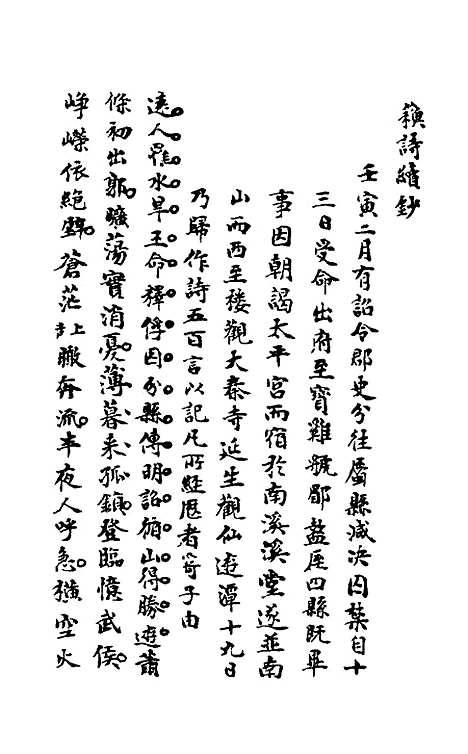 蘋詩續鈔
壬寅二月有詔令郡吏分往屬縣減決囚禁自十
三日受命出府至寶雞虢郿盩厔四縣既畢
事因朝謁太平宮而宿於南溪溪堂遂並南
山而西至樓觀大秦寺延生觀仙遊潭十九日
乃歸作詩五百言以記凡所經歷者寄子由
遠人罹水旱王命釋俘囚分縣傳明詔循山得勝遊蕭
條初出郭曠蕩實消憂薄暮來孤鎮登臨憶武侯
崢嶸依絕壁蒼茫上瞰奔流半夜人呼急橫空火